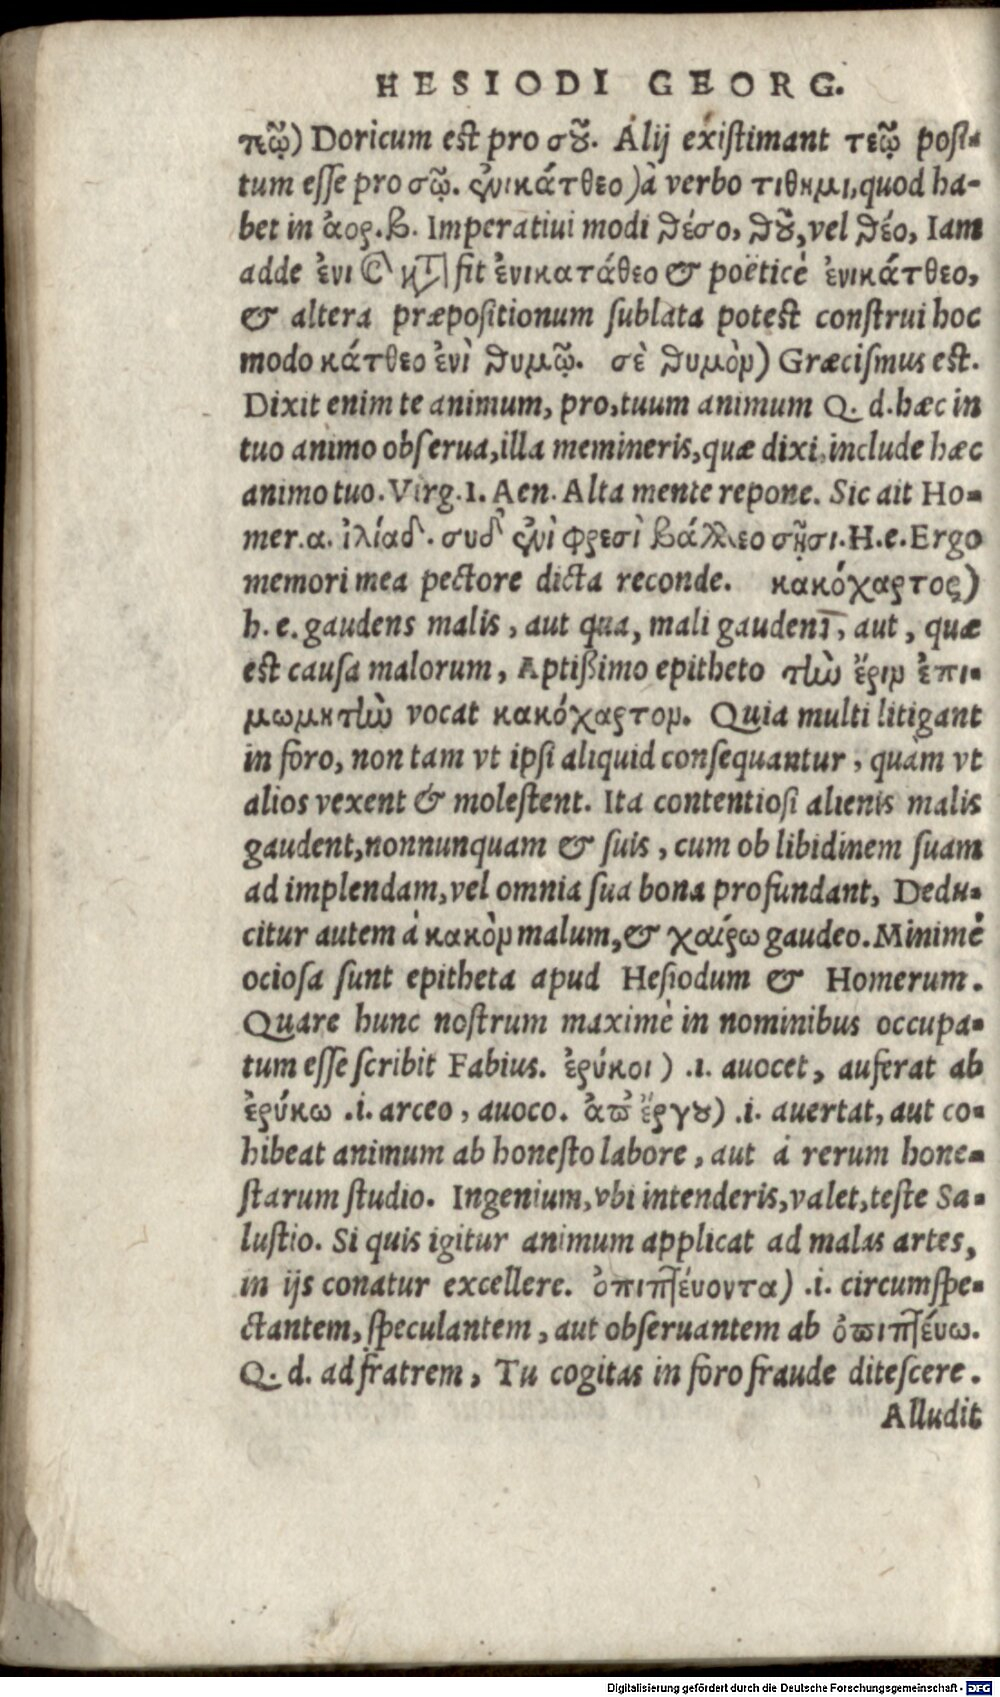 HESIODI GEORG.
πῷ) Doricum est pro σȣ͂. Alij existimant τεῷ posi-
tum esse pro σῷ. ἐνικάτθεο) à verbo τιθημι, quod ha-
bet in ἀορ. β. Imperatiui modi θέσο, θȣ͂, vel θέο, Iam
adde ἐνι & κτ fit ἐνικατάθεο & poëticè ἐνικάτθεο,
& altera præpositionum sublata potest construi hoc
modo κάτθεο ἐνὶ θυμῷ. σὲ θυμὸν) Græcismus est.
Dixit enim te animum, pro, tuum animum Q. d. hæc in
tuo animo obserua, illa memineris, quæ dixi, include hæc
animo tuo. Virg. 1. Aen. Alta mente repone. Sic ait Ho-
mer. α. ἰλίαδ. συδ' ἐνὶ φρεσὶ βάλλεο σῇσι. H. e. Ergo
memori mea pectore dicta reconde. κακόχαρτος)
h. e. gaudens malis, aut qua, mali gaudent, aut, quæ
est causa malorum, Aptißimo epitheto τὴν ἔριν ἐπι-
μωμητὴν vocat κακόχαρτον. Quia multi litigant
in foro, non tam vt ipsi aliquid consequantur, quàm vt
alios vexent & molestent. Ita contentiosi alienis malis
gaudent, nonnunquam & suis, cum ob libidinem suam
ad implendam, vel omnia sua bona profundant, Dedu-
citur autem à κακὸν malum, & χαίρω gaudeo. Minimè
ociosa sunt epitheta apud Hesiodum & Homerum.
Quare hunc nostrum maximè in nominibus occupa-
tum esse scribit Fabius. ἐρύκοι) .i. auocet, auferat ab
ἐρύκω .i. arceo, auoco. ἀπ' ἔργȣ) .i. auertat, aut co-
hibeat animum ab honesto labore, aut à rerum hone-
starum studio. Ingenium, vbi intenderis, valet, teste Sa-
lustio. Si quis igitur animum applicat ad malas artes,
in ijs conatur excellere. ὀπιπτεύοντα) .i. circumspe-
ctantem, speculantem, aut obseruantem ab ὀπιπτεύω.
Q. d. ad fratrem, Tu cogitas in foro fraude ditescere.
Alludit
Digitalisierung gefördert durch die Deutsche Forschungsgemeinschaft - DFG